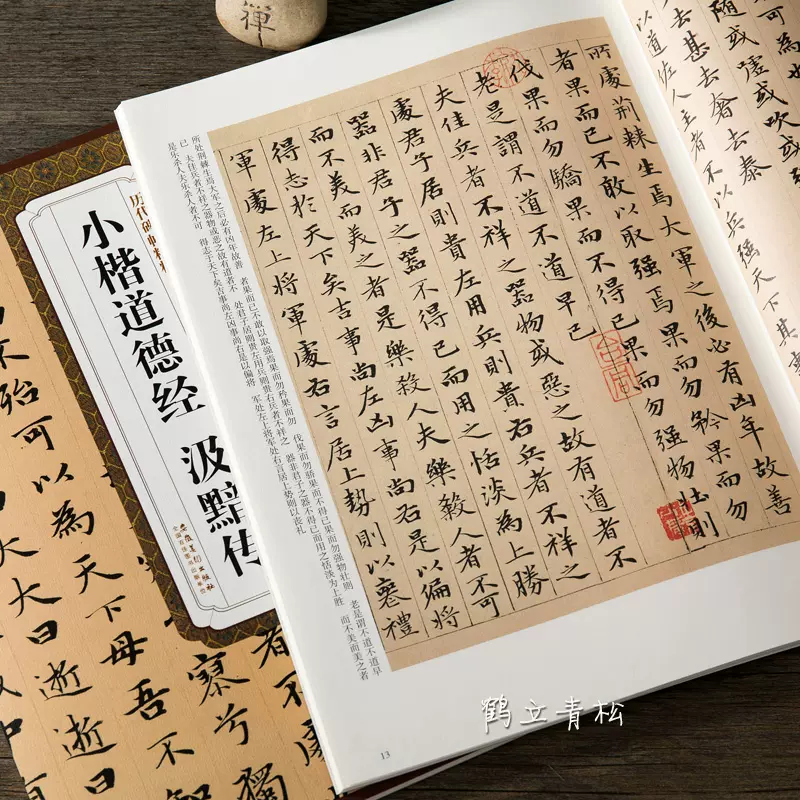 禪
可為也
隨或噓或吹或
去甚去奢去泰
以道佐人主者不以兵强天下其事
所處荊棘生焉大軍之後必有凶年故善
者果而已不敢以取强焉果而勿矜果而勿
伐果而勿驕果而不得已果而勿强物壯則
老是謂不道不道早已
夫佳兵者不祥之器物或惡之故有道者不
處君子居則貴左用兵則貴右兵者不祥之
器非君子之器不得已而用之恬淡為上勝
而不美而美之者是樂殺人夫樂殺人者不可
得志於天下矣吉事尚左凶事尚右是以偏將
軍處左上將軍處右言居上勢則以喪禮
所处荆棘生焉大军之后必有凶年故善 者果而已不敢以取强焉果而勿矜果而勿 伐果而勿骄果而不得已果而勿强物壮则 老是谓不道不道早
已 夫佳兵者不祥之器物或恶之故有道者不 处君子居则贵左用兵则贵右兵者不祥之 器非君子之器不得已而用之恬淡为上胜 而不美而美之者
是乐杀人夫乐杀人者不可 得志于天下矣吉事尚左凶事尚右是以偏将 军处左上将军处右言居上势则以丧礼
13
历代碑帖精粹
小楷道德经 汲黯传
安徽美术出版社
全国百佳图书出版单位
寥兮獨
不殆可以為天下母吾不
大大曰逝逝曰
鹤立青松